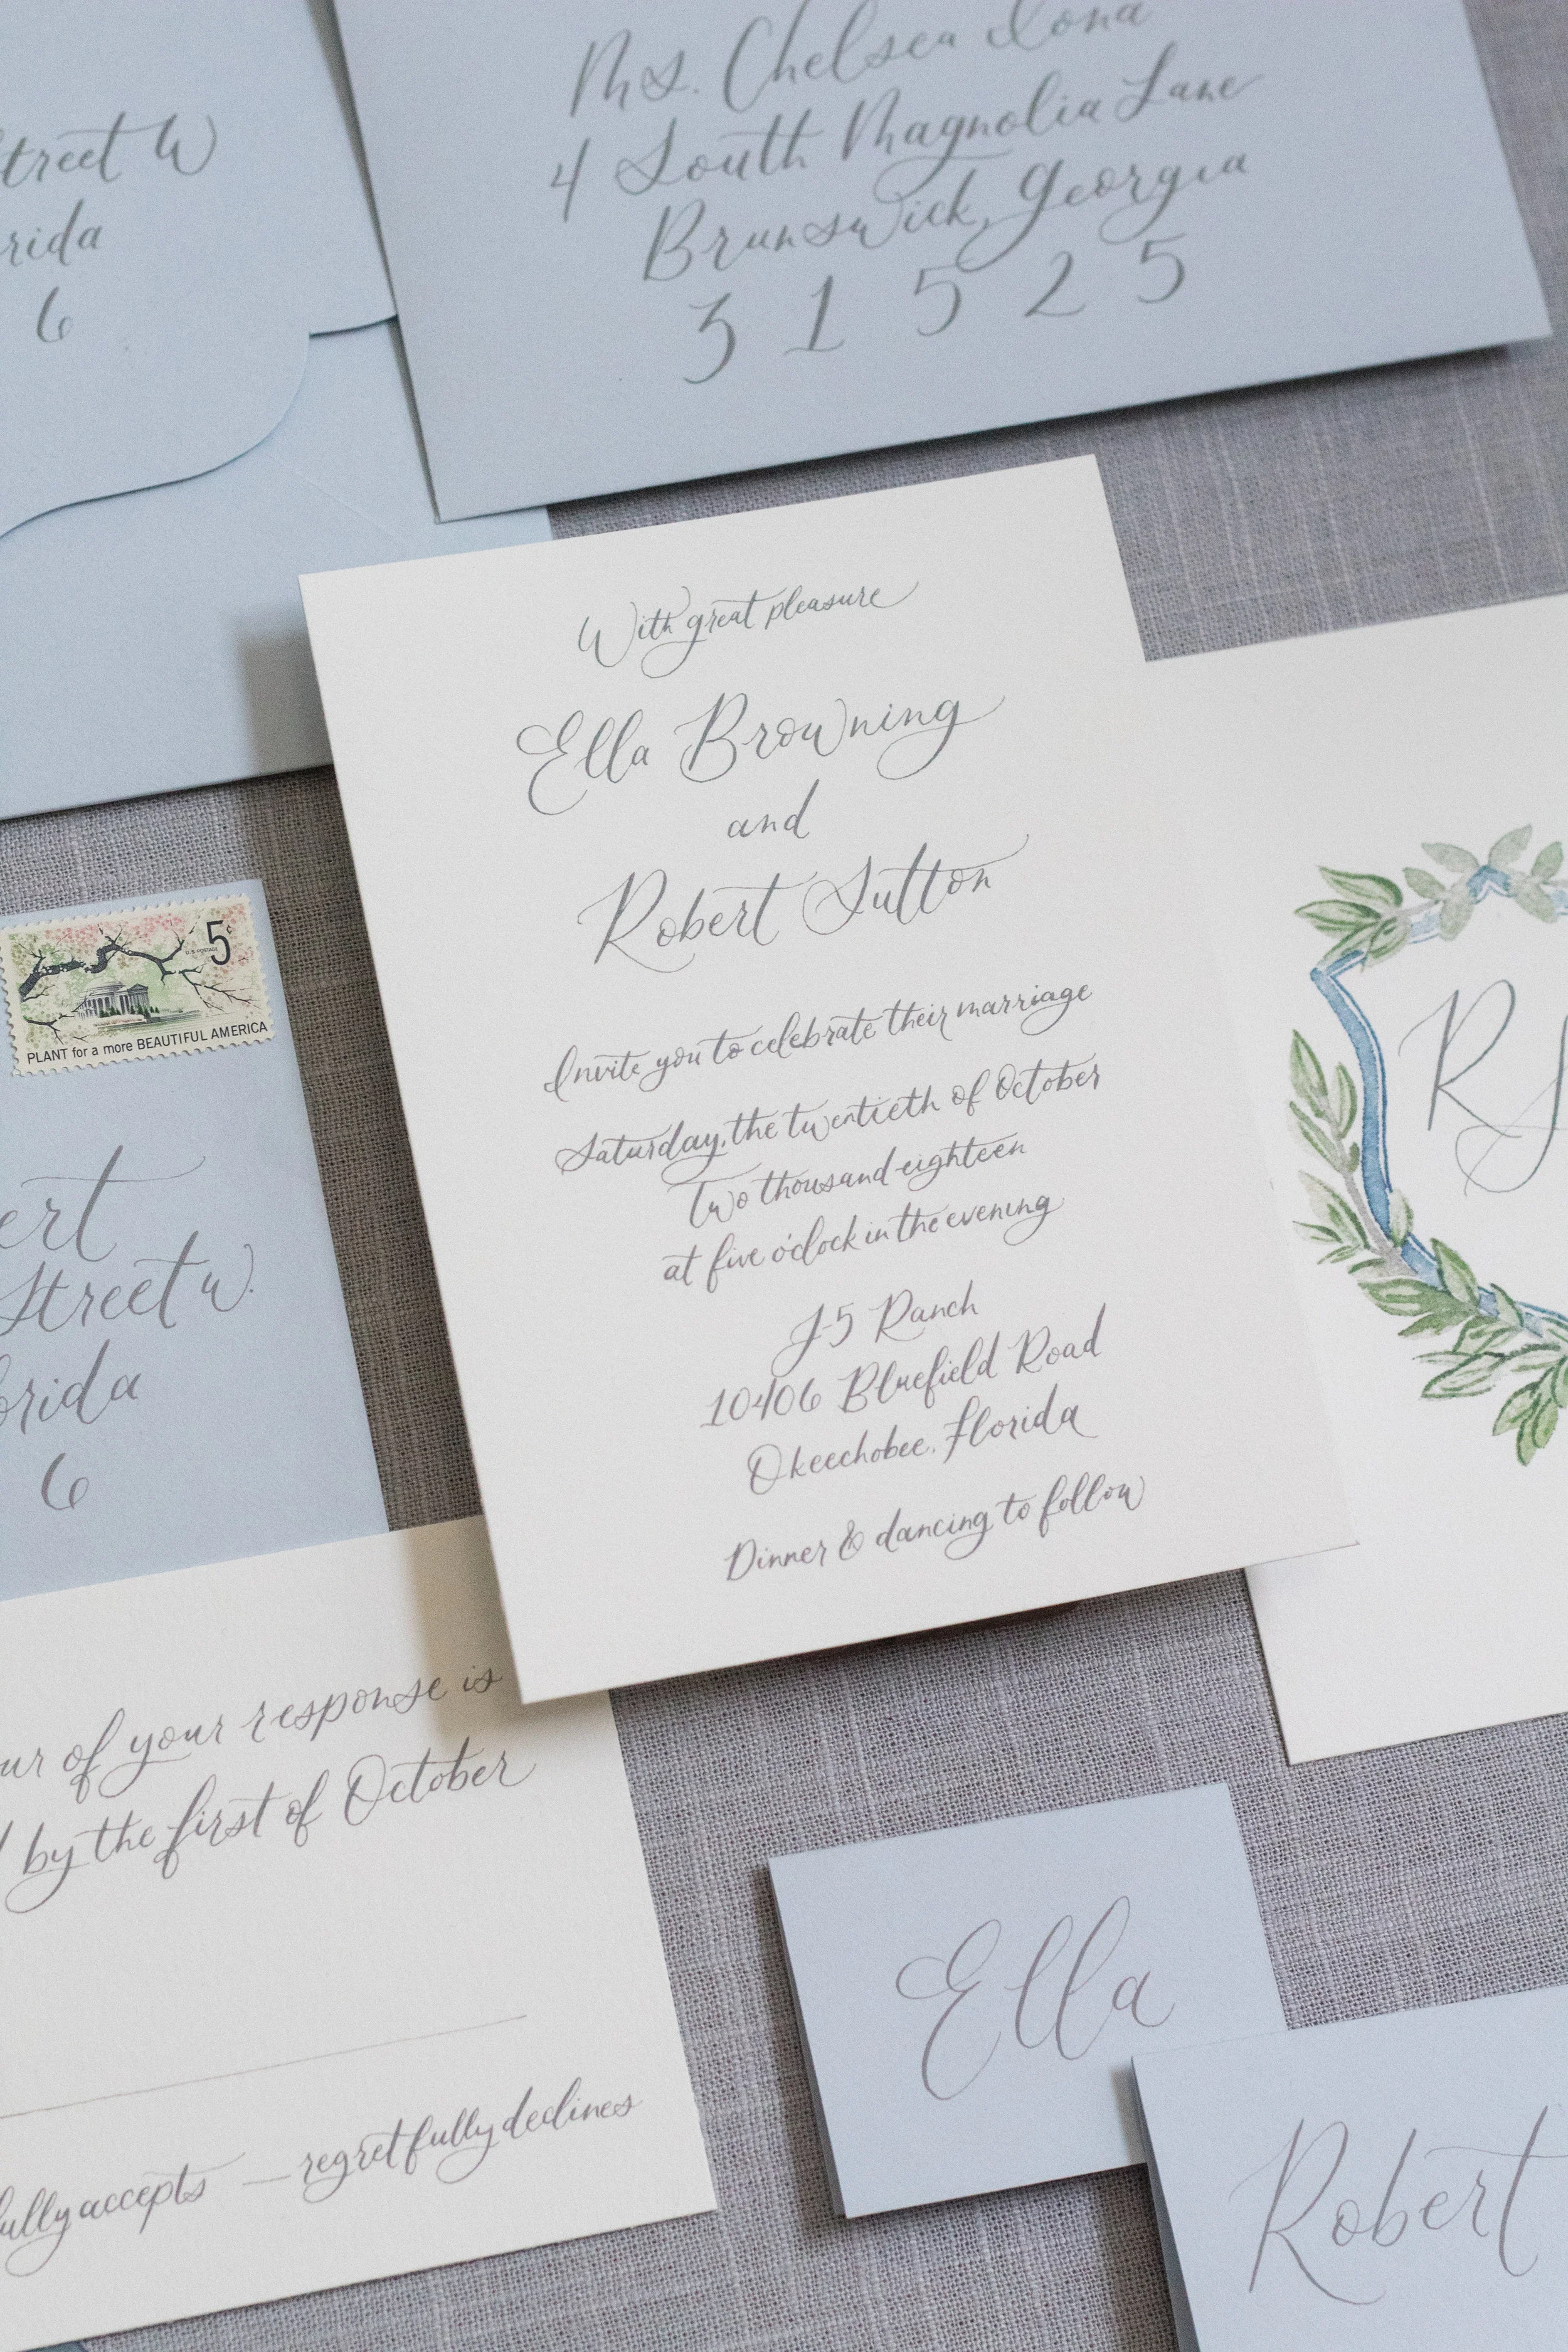 Street W
rida
6
Ms. Chelsea Iona
4 South Magnolia Lane
Brunswick, Georgia
31525
With great pleasure
Ella Browning
and
Robert Sutton
Invite you to celebrate their marriage
Saturday, the twentieth of October
Two thousand eighteen
at five o'clock in the evening
J-5 Ranch
10406 Bluefield Road
Okeechobee, Florida
Dinner & dancing to follow
5¢
U.S. POSTAGE
PLANT for a more BEAUTIFUL AMERICA
ert
Street W.
orida
6
R
ur of your response is
by the first of October
fully accepts — regretfully declines
Ella
Robert